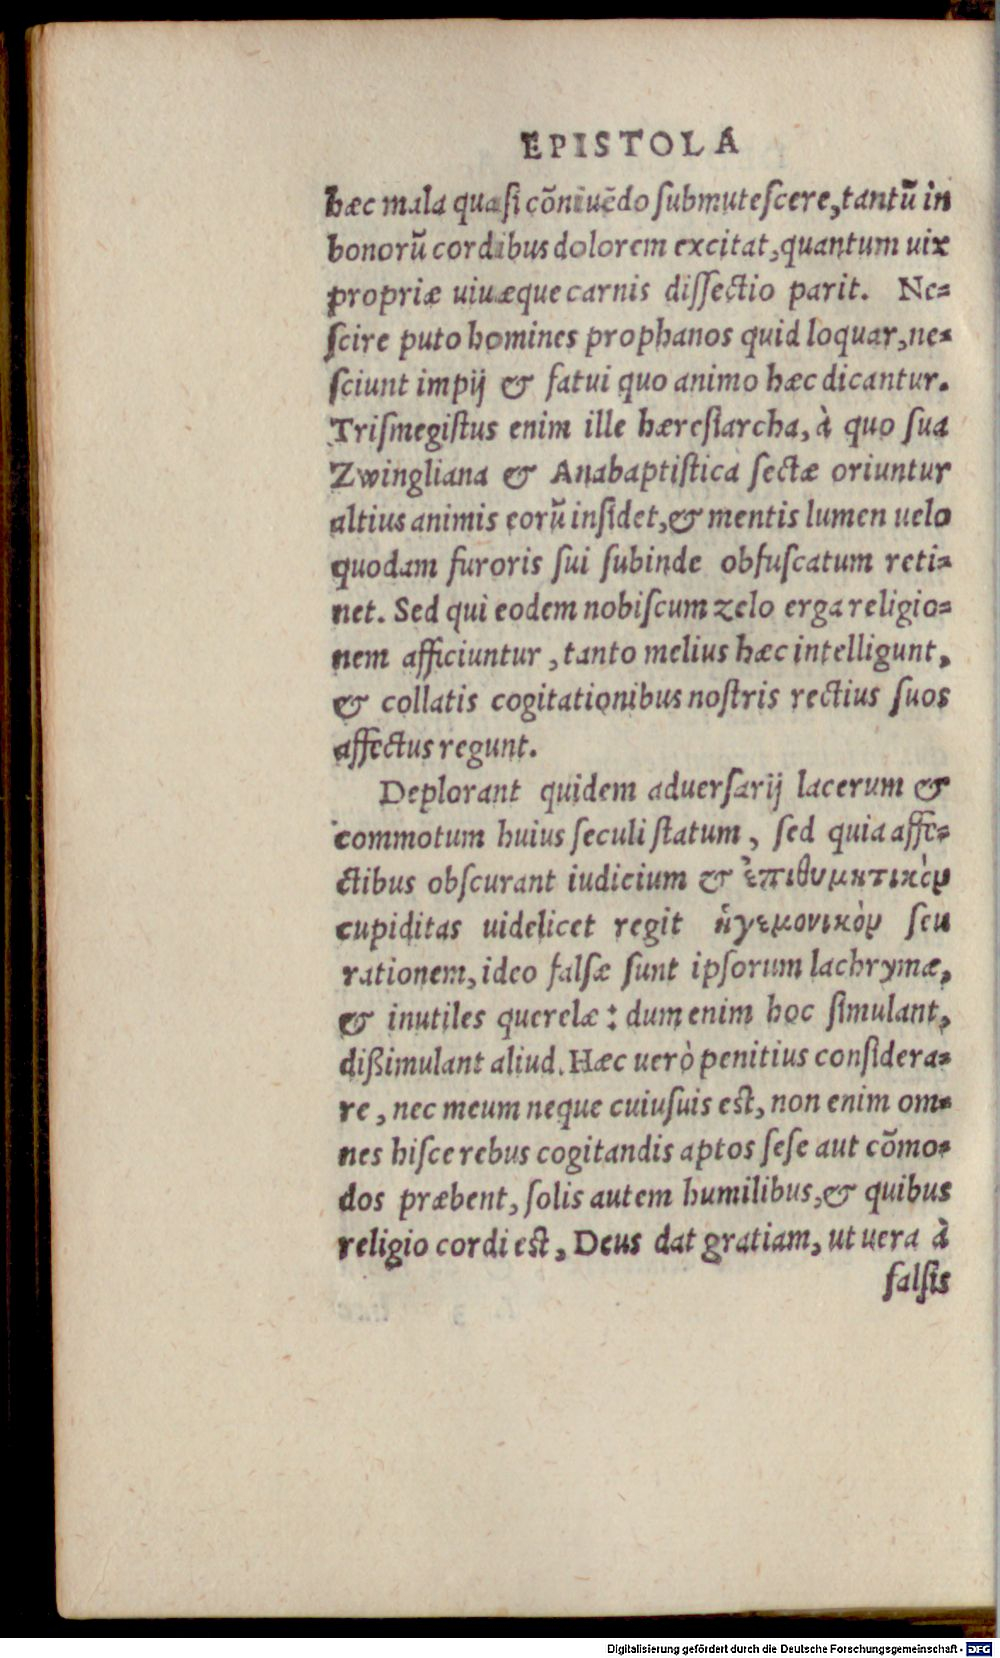 EPISTOLA
hæc mala quasi cõniuẽdo ſubmuteſcere, tantũ in
bonorũ cordibus dolorem excitat, quantum uix
propriæ uiuæque carnis diſſectio parit. Ne=
ſcire puto homines prophanos quid loquar, ne=
ſciunt impij & fatui quo animo hæc dicantur.
Triſmegiſtus enim ille hæreſiarcha, à quo ſua
Zwingliana & Anabaptiſtica ſectæ oriuntur
altius animis eorũ inſidet, & mentis lumen uelo
quodam furoris ſui ſubinde obfuſcatum reti=
net. Sed qui eodem nobiſcum zelo erga religio=
nem afficiuntur, tanto melius hæc intelligunt,
& collatis cogitationibus noſtris rectius ſuos
affectus regunt.
Deplorant quidem aduerſarij lacerum &
commotum huius ſeculi ſtatum, ſed quia affe=
ctibus obſcurant iudicium & ἐπιθυμητικὸν
cupiditas uidelicet regit ἡγεμονικὸν ſeu
rationem, ideo falſæ ſunt ipſorum lachrymæ,
& inutiles querelæ: dum enim hoc ſimulant,
dißimulant aliud. Hæc uerò penitius conſidera=
re, nec meum neque cuiuſuis eſt, non enim om=
nes hiſce rebus cogitandis aptos ſeſe aut cõmo=
dos præbent, ſolis autem humilibus, & quibus
religio cordi eſt, Deus dat gratiam, ut uera à
falſis
Digitalisierung gefördert durch die Deutsche Forschungsgemeinschaft - DFG